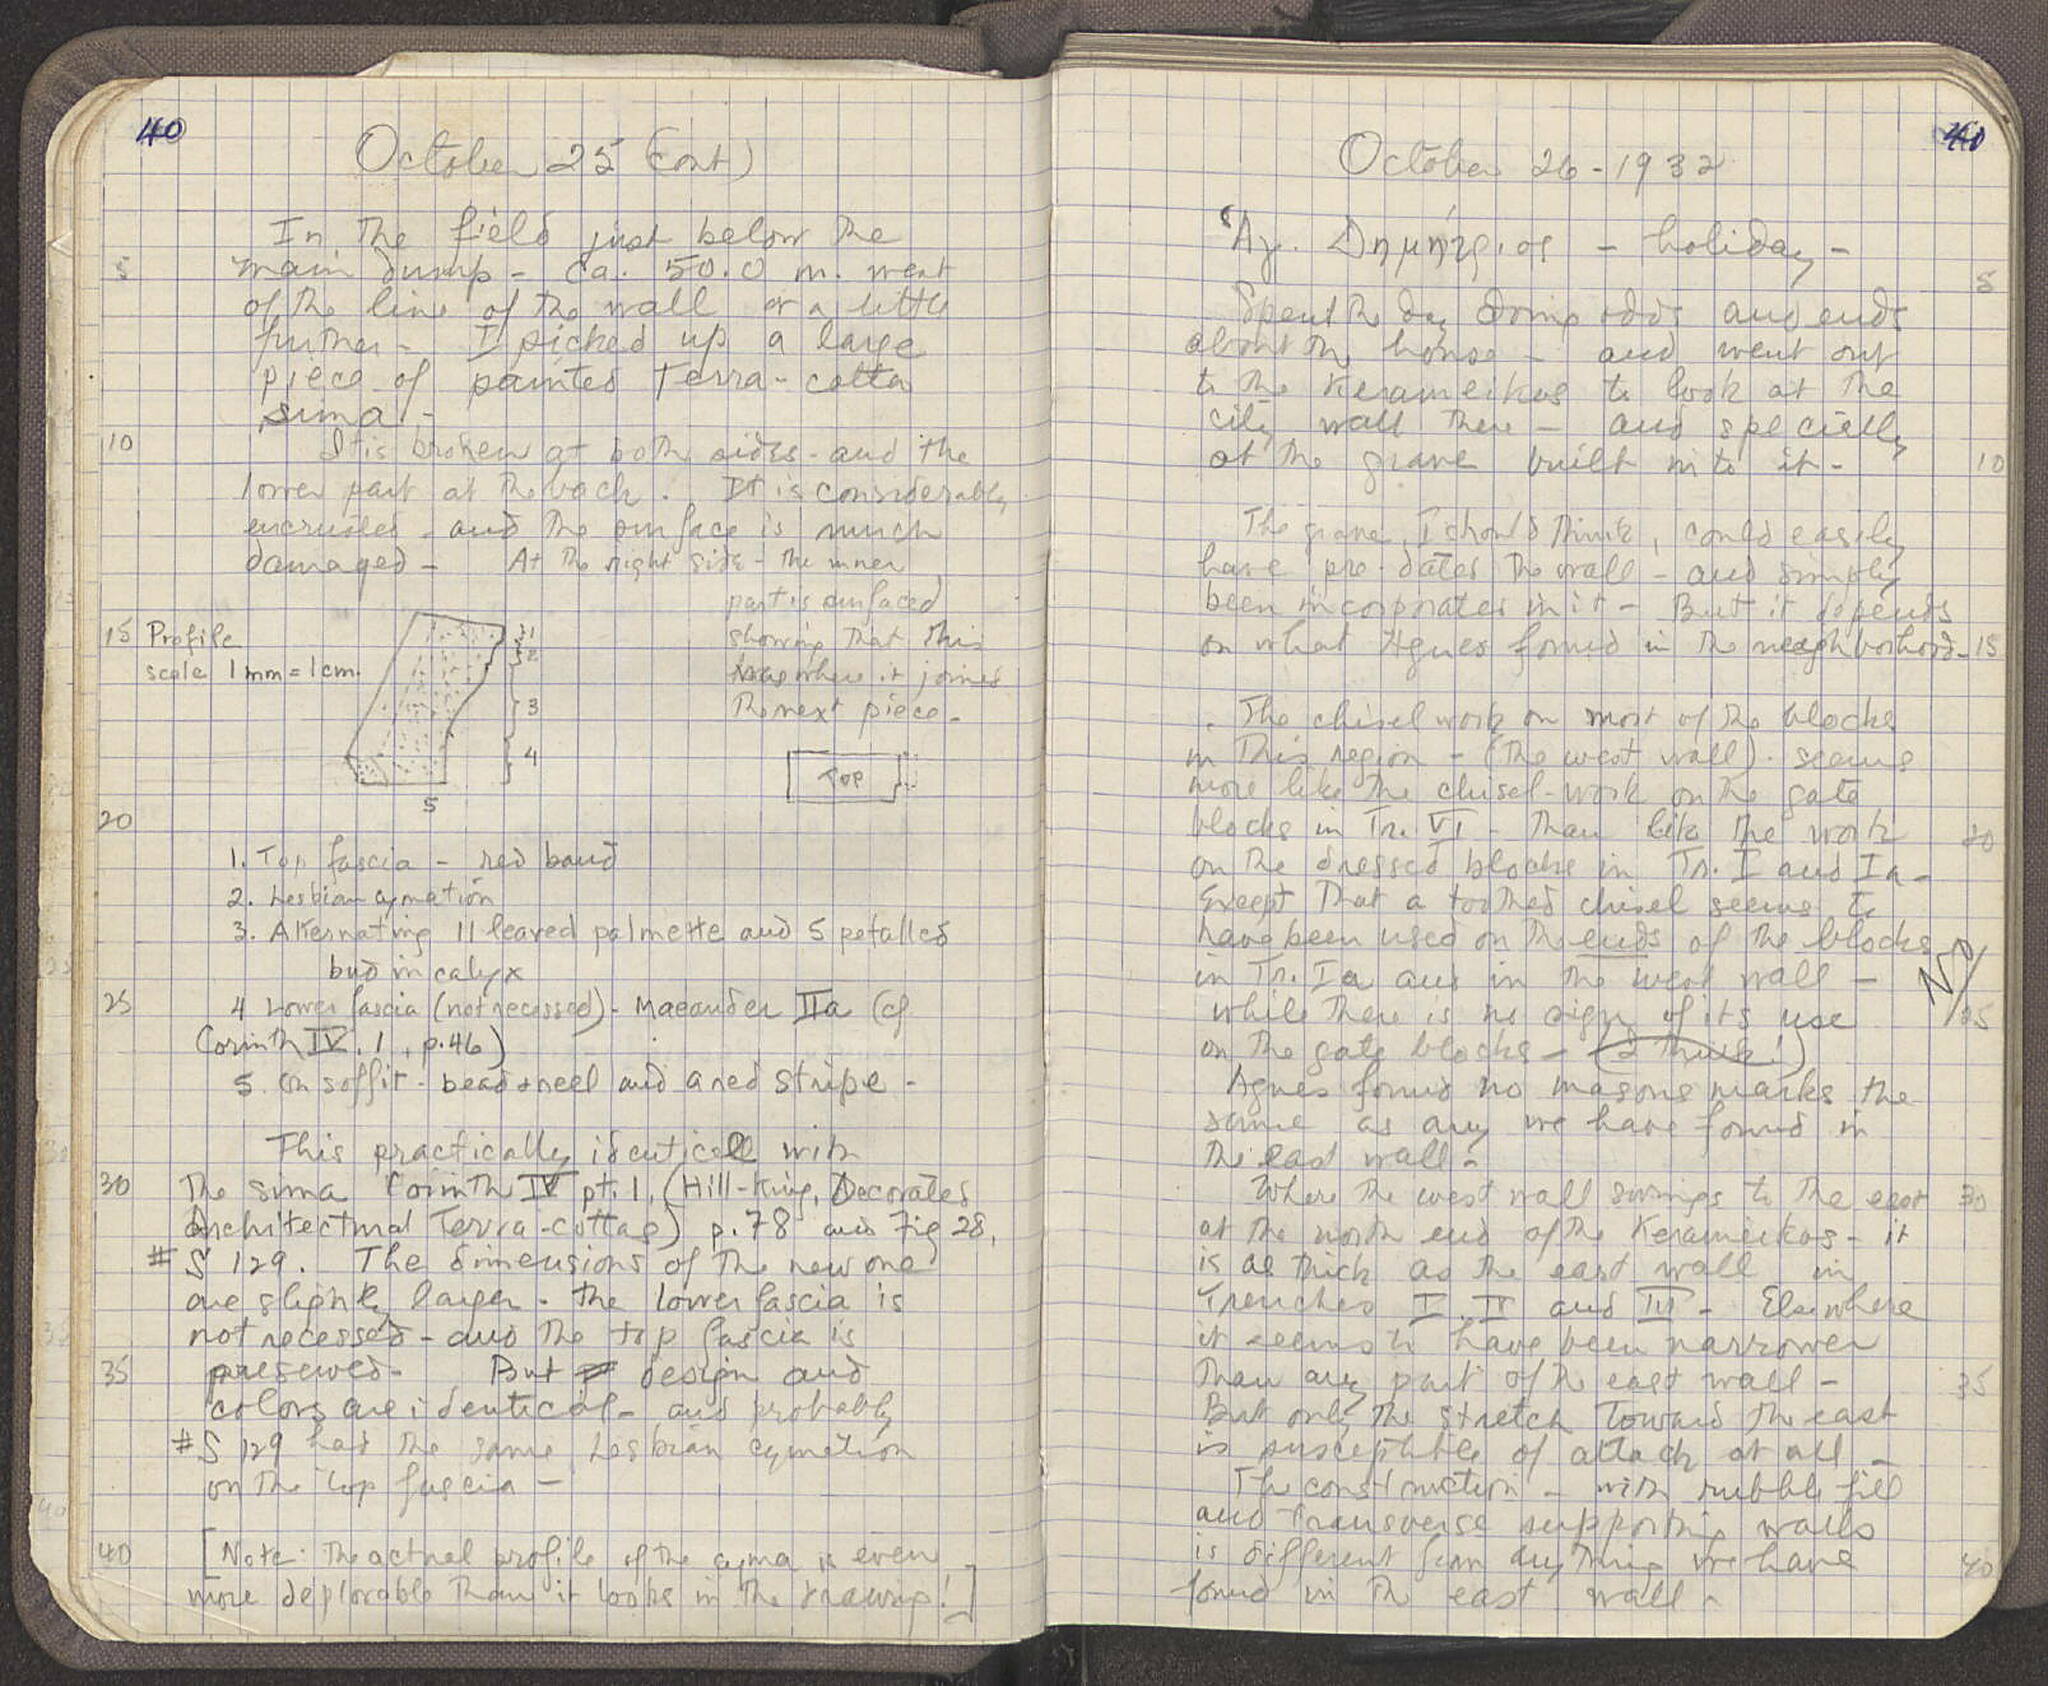 40
October 25 (cont)
In the field just below the
5 main dump - ca. 50.0 m. west
of the line of the wall or a little
further - I picked up a large
piece of painted Terra-cotta
sima -
10 It is broken at both sides - and the
lower part at the back. It is considerably
encrusted - and the surface is much
damaged - At the right side - the inner
part is surfaced
15 Profile showing that this
scale 1 mm = 1 cm. was where it joined
the next piece -
1
2
3
4
5
TOP
20
1. Top fascia - red band
2. Lesbian cymation
3. Alternating 11 leaved palmette and 5 petalled
bud in calyx
25 4 Lower fascia (not recessed) - Maeander IIa (cf
Corinth IV. 1, p. 46)
5. On soffit - bead + reel and a red stripe -
This practically identical with
30 the sima Corinth IV pt. 1. (Hill-King, Decorated
Architectural Terra-cottas) p. 78 and Fig 28,
# S 129. The dimensions of the new one
are slightly larger - the lower fascia is
not recessed - and the top fascia is
35 preserved - But design and
colors are identical - and probably
# S 129 had the same Lesbian cymation
on the top fascia -
40 [Note: The actual profile of the cyma is even
more deplorable than it looks in the drawing!]
40
October 26 - 1932
Ἁγ. Δημήτριος - holiday -
5
Spent the day doing odds and ends
about the house - and went out
to the Kerameikos to look at the
city wall there - and specially
at the grave built into it - 10
The grave, I should think, could easily
have pre-dated the wall - and simply
been incorporated in it - But it depends
on what Agnes found in the neighborhood - 15
The chisel work on most of the blocks
in this region - (the west wall) - seems
more like the chisel-work on the gate
blocks in Tr. VI - than like the work 20
on the dressed blocks in Tr. I and Ia -
Except that a toothed chisel seems to
have been used on the ends of the blocks
in Tr. Ia and in the west wall - No
while there is no sign of its use 25
on the gate blocks - (I think!)
Agnes found no masons marks the
same as any we have found in
the east wall -
Where the west wall swings to the east 30
at the north end of the Kerameikos - it
is as thick as the east wall in
Trenches I, IV and III - Elsewhere
it seems to have been narrower
than any part of the east wall - 35
But only the stretch toward the east
is susceptible of attack at all -
The construction - with rubble fill
and transverse supporting walls
is different from anything we have 40
found in the east wall -